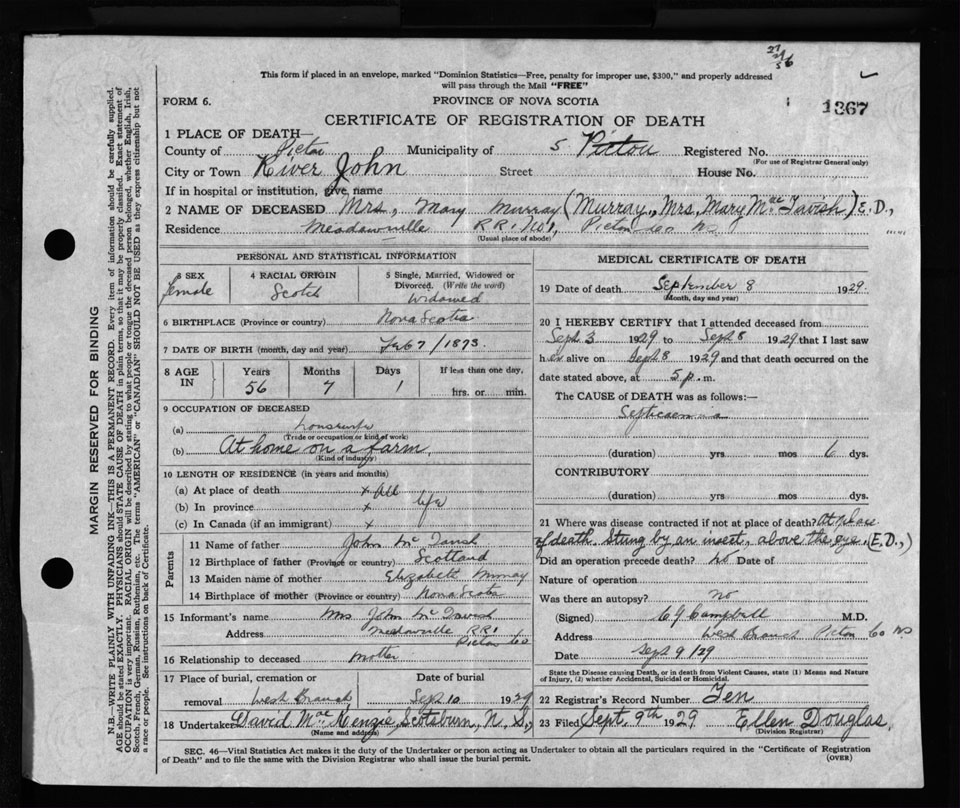 27
5 6
This form if placed in an envelope, marked "Dominion Statistics—Free, penalty for improper use, $300," and properly addressed
will pass through the Mail "FREE"
FORM 6. PROVINCE OF NOVA SCOTIA 1367
CERTIFICATE OF REGISTRATION OF DEATH
1 PLACE OF DEATH—
County of Pictou Municipality of 5 Pictou Registered No.
(For use of Registrar General only)
City or Town River John Street House No.
If in hospital or institution, give name
2 NAME OF DECEASED Mrs, Mary Murray (Murray, Mrs, Mary MacTavish) E.D.,
Residence Meadowville R.R. No 1, Pictou Co NS
(Usual place of abode)
PERSONAL AND STATISTICAL INFORMATION
3 SEX female
4 RACIAL ORIGIN Scotch
5 Single, Married, Widowed or
Divorced. (Write the word)
Widowed
6 BIRTHPLACE (Province or country) Nova Scotia
7 DATE OF BIRTH (month, day and year) Feb 7 / 1873
8 AGE IN Years 56 Months 7 Days 1 If less than one day, hrs. or min.
9 OCCUPATION OF DECEASED
(a) housewife
(Trade or occupation or kind of work)
(b) At home on a farm,
(Kind of industry)
10 LENGTH OF RESIDENCE (in years and months)
(a) At place of death x all
(b) In province x life
(c) In Canada (if an immigrant) x
Parents
11 Name of father John McTavish
12 Birthplace of father (Province or country) Scotland
13 Maiden name of mother Elizabeth Murray
14 Birthplace of mother (Province or country) Nova Scotia
15 Informant's name Mrs John McTavish
Address Meadowville RR1
Pictou Co
16 Relationship to deceased mother
17 Place of burial, cremation or removal West Branch Date of burial Sep 10 1929
18 Undertaker David MacKenzie, Scotsburn, N. S.,
(Name and address)
MEDICAL CERTIFICATE OF DEATH
19 Date of death September 8 1929.
(Month, day and year)
20 I HEREBY CERTIFY that I attended deceased from
Sept 3 1929 to Sept 8 1929 that I last saw
her alive on Sept 8 1929 and that death occurred on the
date stated above, at 5 p.m.
The CAUSE of DEATH was as follows:—
Septicaemia
(duration) yrs mos 6 dys.
CONTRIBUTORY
(duration) yrs mos dys.
21 Where was disease contracted if not at place of death? At place
of death. Stung by an insect, above the eye. (E.D.,)
Did an operation precede death? No Date of
Nature of operation
Was there an autopsy? No
(Signed) C J Campbell M.D.
Address West Branch Pictou Co NS
Date Sept 9/29
State the Disease causing Death, or in death from Violent Causes, state (1) Means and Nature
of Injury, (2) whether Accidental, Suicidal or Homicidal.
22 Registrar's Record Number Ten
23 Filed Sept. 9th 1929 Ellen Douglas,
(Division Registrar)
SEC. 46—Vital Statistics Act makes it the duty of the Undertaker or person acting as Undertaker to obtain all the particulars required in the "Certificate of Registration
of Death" and to file the same with the Division Registrar who shall issue the burial permit. (OVER)
MARGIN RESERVED FOR BINDING
N.B.—WRITE PLAINLY WITH UNFADING INK—THIS IS A PERMANENT RECORD. Every item of information should be carefully supplied.
AGE should be stated EXACTLY. PHYSICIANS should STATE CAUSE OF DEATH in plain terms, so that it may be properly classified. Exact statement of
OCCUPATION is very important. RACIAL ORIGIN will be described by stating to what people or tongue the deceased person belonged, whether English, Irish,
Scotch, French, German, Russian, Ruthenian, etc. The terms "AMERICAN" or "CANADIAN" SHOULD NOT BE USED as they express citizenship but not
a race or people. See instructions on back of Certificate.